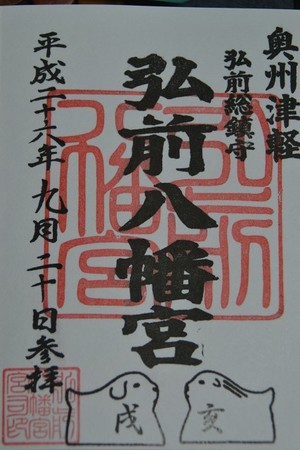 奥州津軽
弘前総鎮守
弘前八幡宮
平成二十六年九月二十日参拝
弘前八幡宮
弘前八幡宮宮司印
戌
亥